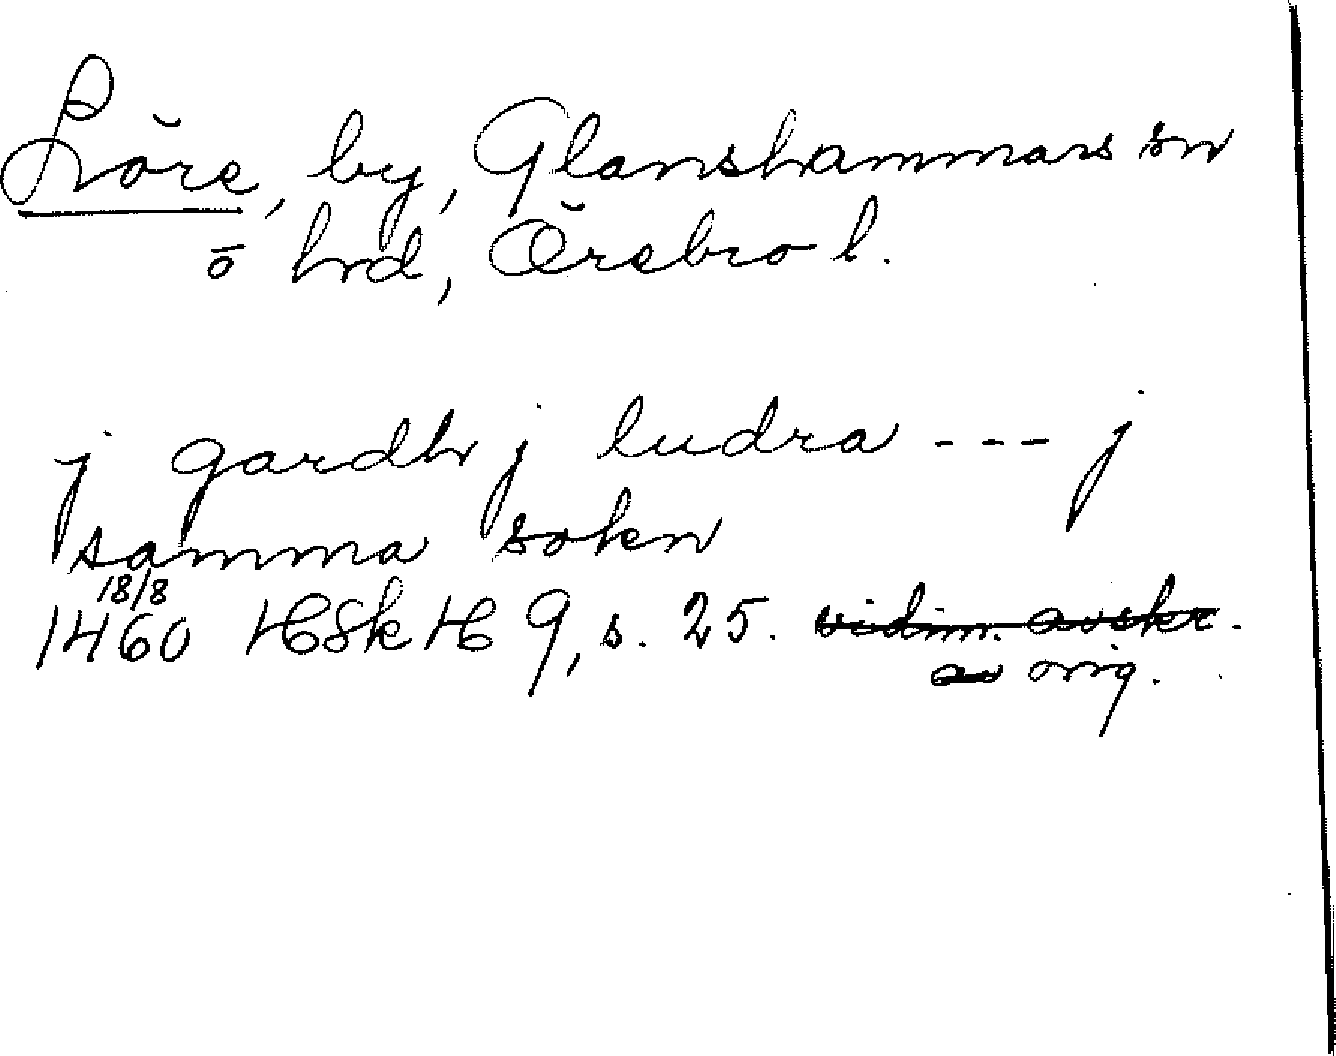 Löre, by, Glanshammars sn
o hrd, Örebro l.
j gardh j ludra --- j
samma sokn
18/8
1460 HSkH 9, s. 25. vidim. avskr.
av orig.